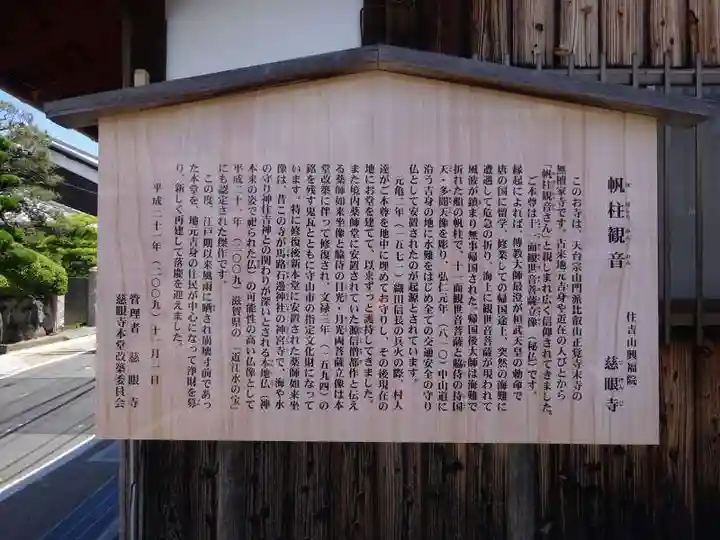 帆柱観音
住吉山興福院 慈眼寺
このお寺は、天台宗山門派比叡山正覚寺末寺の
無檀家寺です。古来地元吉身や近在の人びとから
「帆柱観音さん」と親しまれ広く信仰されてきました。
ご本尊は十一面観世音菩薩立像（秘仏）です。
縁起によれば、傳教大師最澄が桓武天皇の勅命で
唐の国に留学、修業しての帰国途上、突然の海難に
遭遇して危急の折り、海上に観世音菩薩が現われて
風波が鎮まり無事帰国された。帰国後大師は海難で
折れた船の帆柱で、十一面観世音菩薩と脇侍の持国
天・多聞天像を彫り、弘仁元年（八一〇）中山道に
沿う吉身の地に水難をはじめ全ての交通安全の守り
仏として安置されたのが起源とされています。
元亀二年（一五七一）織田信長の兵火の際、村人
達がご本尊を地中に埋めてお守りし、その後現在の
地にお堂を建てて、以来ずっと護持してきました。
また境内薬師堂に安置されていた源信僧都作と伝え
る薬師如来坐像と脇侍の日光・月光両菩薩立像は本
堂改築に伴って修復され、文禄三年（一五九四）の
銘を残す鬼瓦とともに守山市の指定文化財になって
います。特に修復後新本堂に安置された薬師如来坐
像は、昔この寺が馬路石邊神社の神宮寺で、海や水
の守り神住吉神との関わりが深いとされる本地仏（神
本来の姿で祀られた仏）の可能性の高い仏像として
平成二十一年（二〇〇九）滋賀県の「近江水の宝」
にも認定された傑作です。
この度、江戸期以来風雨に晒され崩壊寸前であっ
た本堂を、地元吉身の住民が中心になって浄財を募
り、新しく再建して落慶を迎えました。
平成二十一年（二〇〇九）十二月一日
管理者 慈眼寺
慈眼寺本堂改築委員会